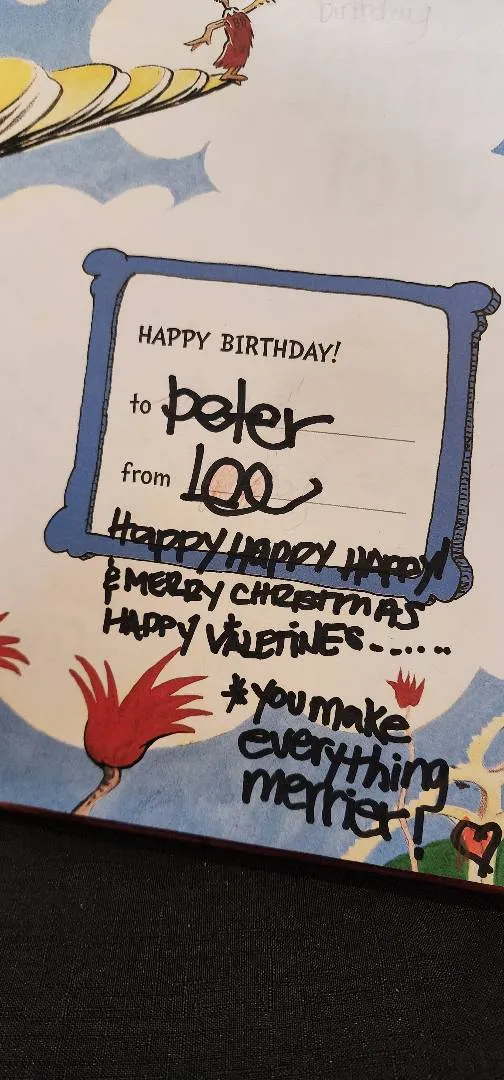 birthday
HAPPY BIRTHDAY!
to peter
from Lee
HAPPY HAPPY HAPPY!
& MERRY CHRISTMAS
HAPPY VALETINES......
*you make
everything
merrier!